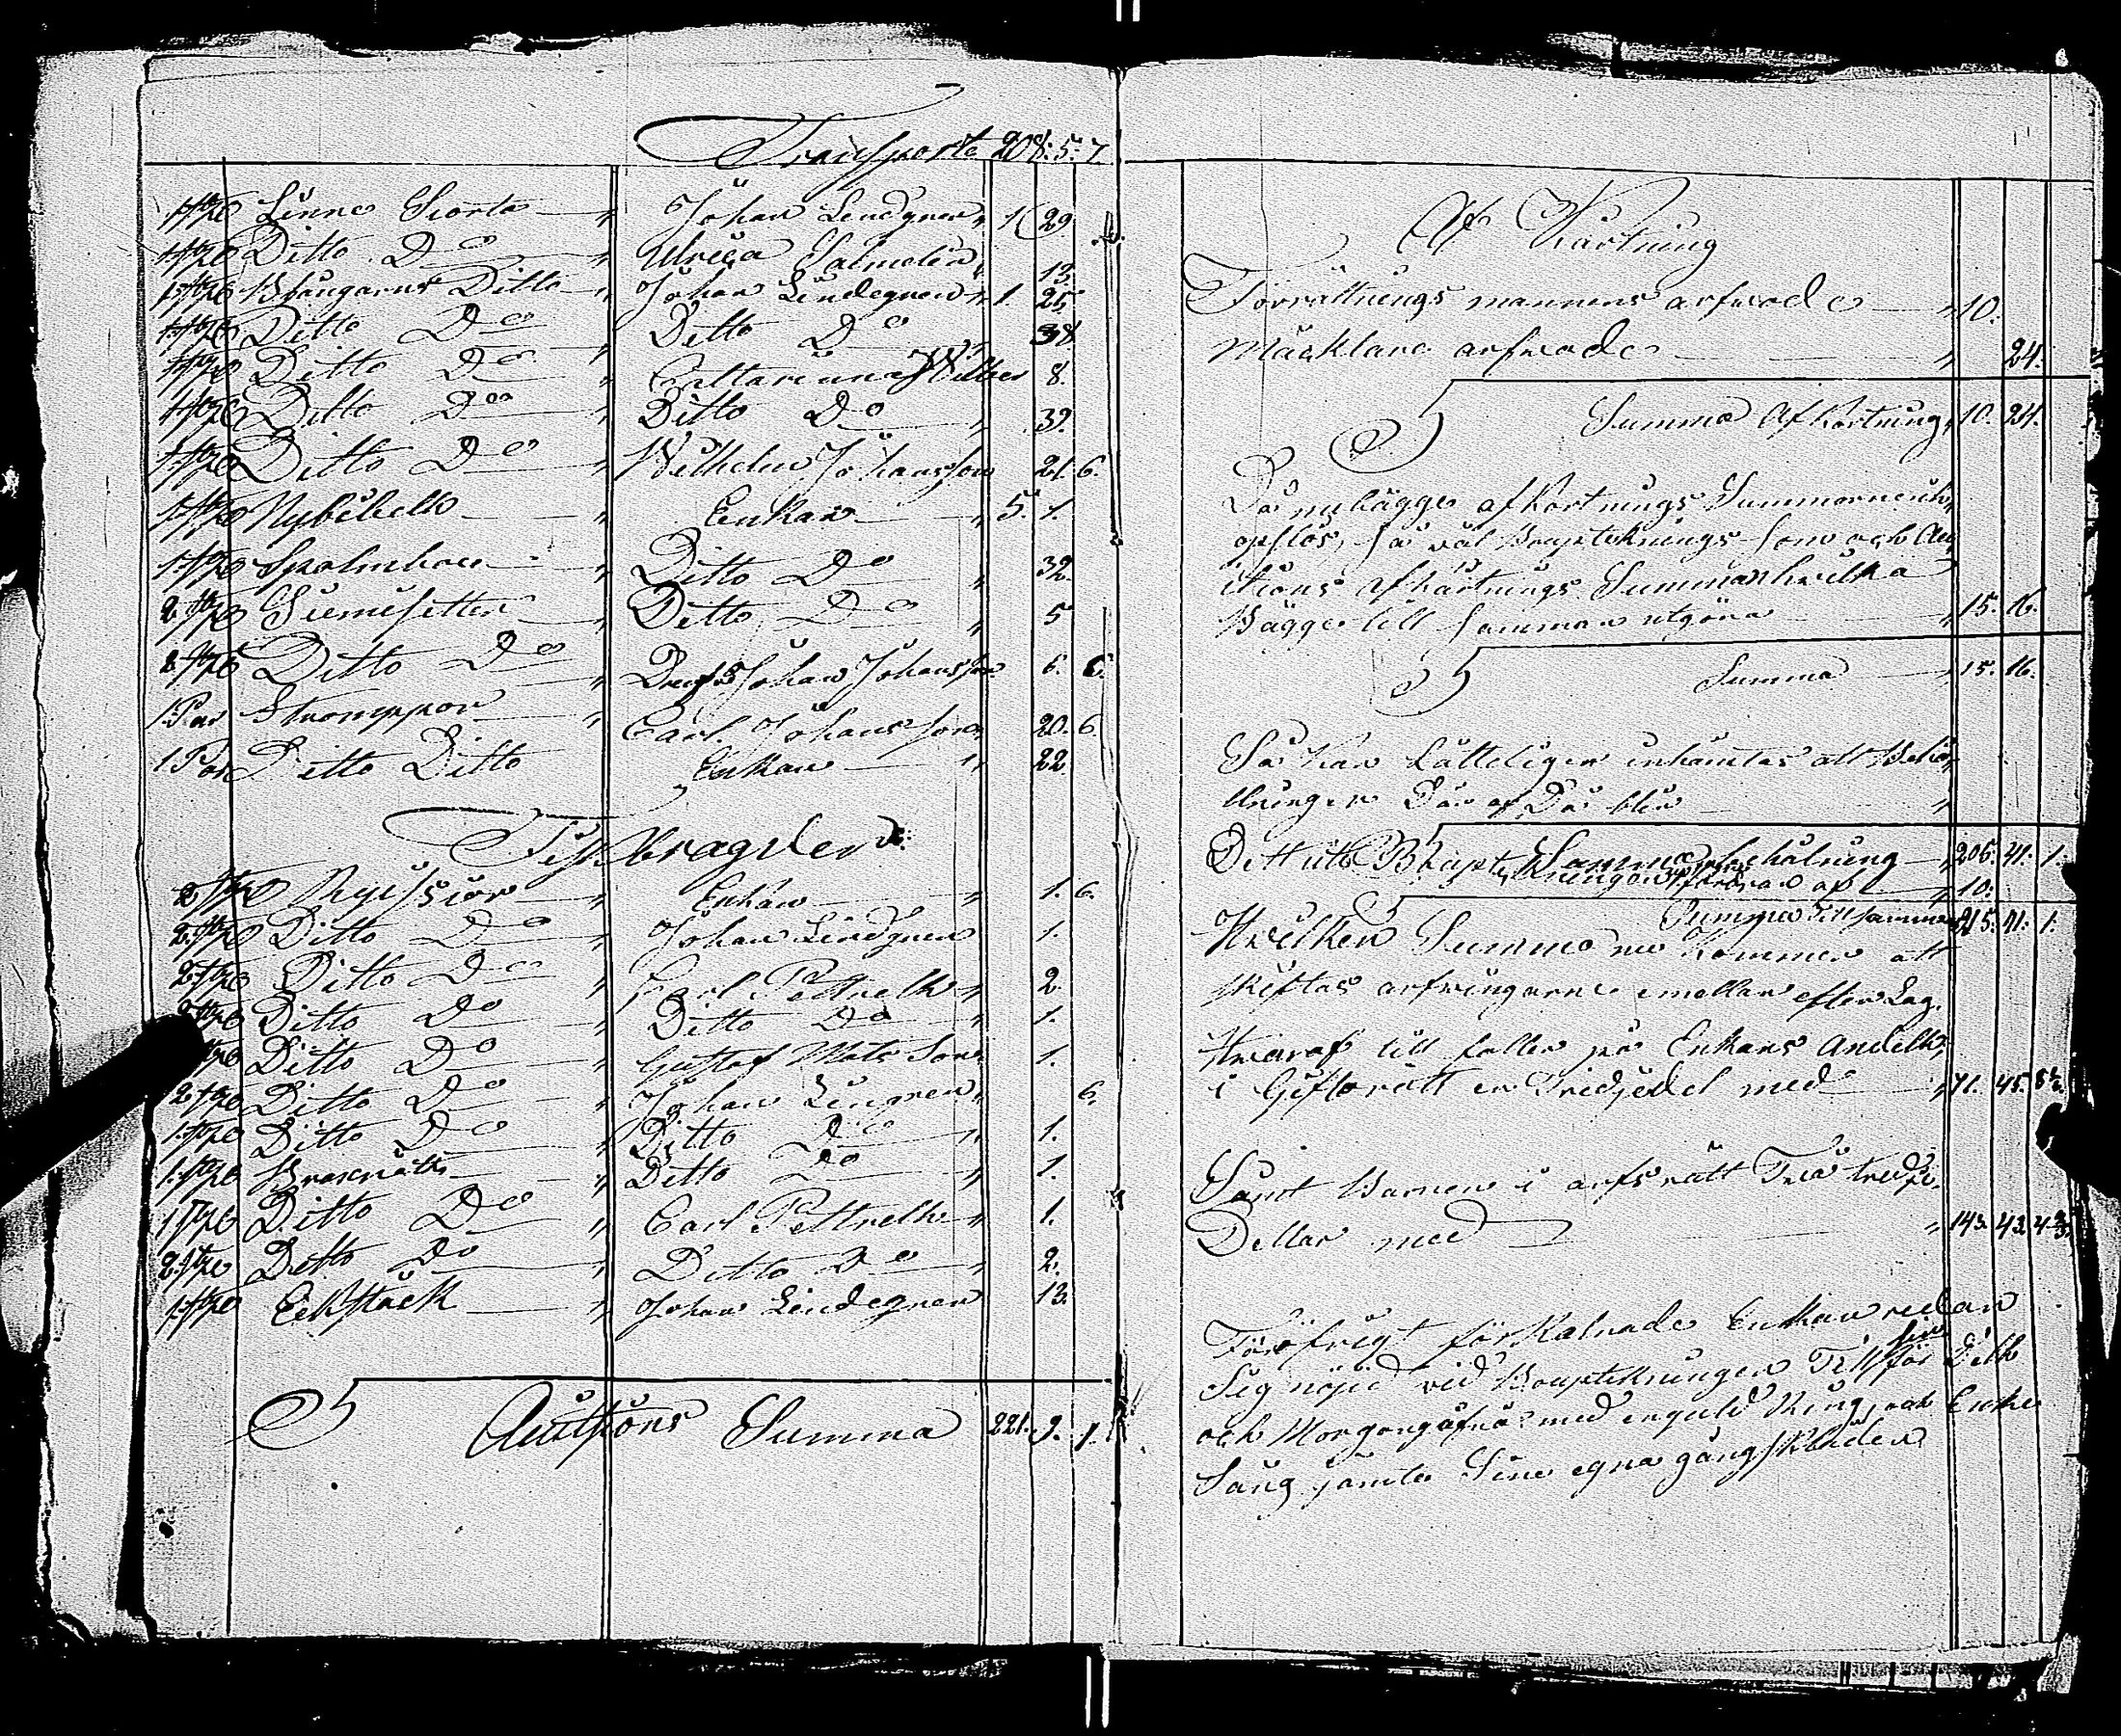 Transporte 208. 5. 7
1 styke Linne Skorta " Johan Lindgren " 1. 29
1 styke Ditto Do " Ulrica Salmelin " 13.
1 styke Blångarns Ditto " Johan Lindegren " 1. 25.
1 styke Ditto Do " Ditto Do " 38
1 styke Ditto Do " Cattarina Wilber 8.
1 styke Ditto Do " Ditto Do " 39.
1 styke Ditto Do " Wilhelm Johansson 21. 6.
1 styke Nybibell " Enkan " 5. 1.
1 styke " Ditto Do " 32.
2 styke " Ditto Do " 5
2 styke Ditto Do " Johan Johansson 6. 6.
1 Par Strompor " Carl Johansson " 20. 6.
1 Par Ditto Ditto Enkan " 22.
Fiskbragder
2 styke Ryssior " Enkan " 1. 6.
2 styke Ditto Do " Johan Lindgren 1.
2 styke Ditto Do " Carl Pettrell " 2.
2 styke Ditto Do " Ditto Do " 1.
styke Ditto Do " Gustaf Mats Son " 1.
2 styke Ditto Do " Johan Lingren " 6.
1 styke Ditto Do " Ditto Do " 1.
1 styke Braxnätt " Ditto Do " 1.
1 styke Ditto Do " Carl Pettrell " 1.
2 styke Ditto Do " Ditto Do " 2.
1 styke Ekstäck " Johan Lindegren 13.
Auctions Summa 221. 9. 1.
Af Kartning
Förrättnings mannens arfwode " 10.
Mäcklare arfwode " 24.
Summa Afkortning " 10. 24.
Då nu bägge afkortnings Summorne
så väl Boupteknings som och Au
ctions afkärtnings Summar hwilka
Bägge till samman utgöra " 15. 16.
Summa " 15. 16.
Så kan Lätteligen inhämtas att Behå
llningen Där af Då blir "
Ditt uti Boupteckningen Summa behålning " 205. 41. 1.
" 10.
Summa Till samman 215. 41. 1.
Hwilken Summa nu kommer att
skiftas arfwingarne emellan efter Lag.
Hwaraf till faller på Enkans andell
i Gifto rätt en Tredjedel med " 71. 45. 8⅓.
Samt Barnen i arfs rätt Två tredje
Dellar med " 143. 43. 4⅔.
För öfrigt förklarade Enkan redan
sig nöjd vid Bouptekningen Till för sin Dell
och Morgongåfwa med en guld Ring, och Enke
Säng jämte Sina egna gång Kläder